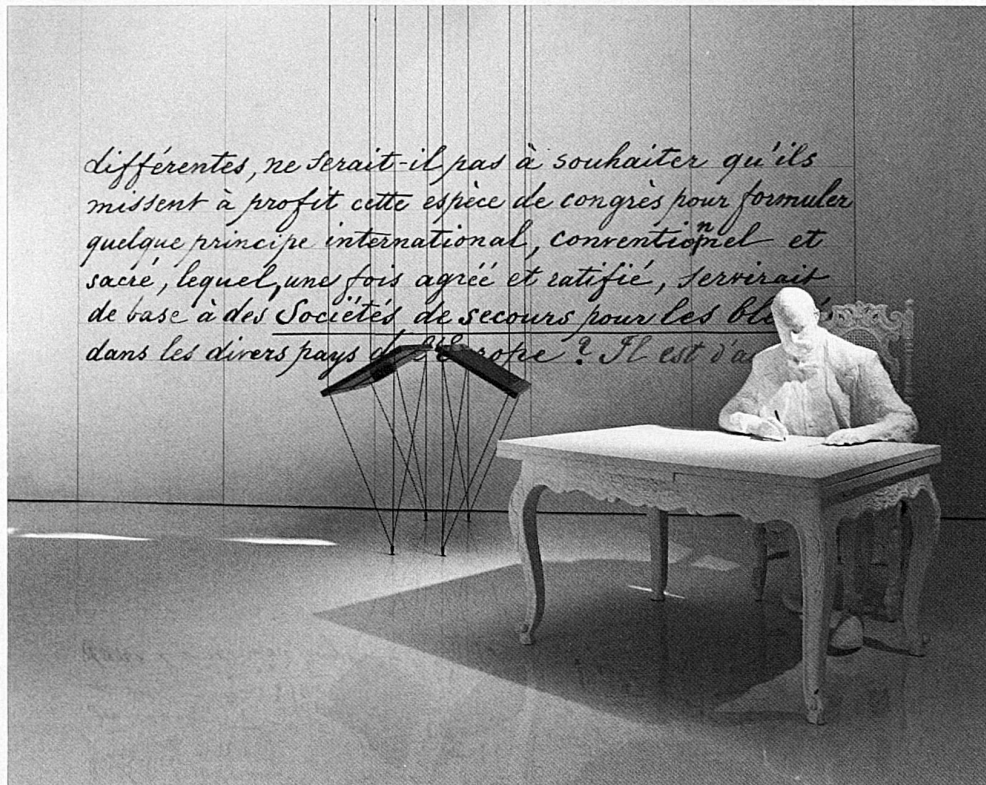 différentes, ne serait-il pas à souhaiter qu'ils
missent à profit cette espèce de congrès pour formuler
quelque principe international, conventionnel et
sacré, lequel, une fois agréé et ratifié, servirait
de base à des Sociétés de secours pour les
dans les divers pays de l'Europe ? Il est